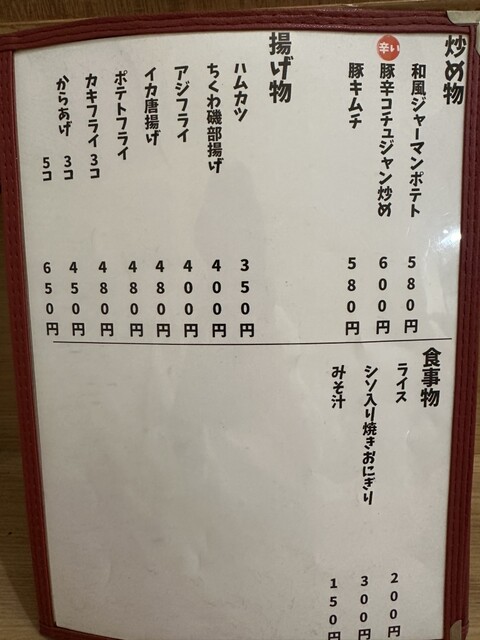 炒め物
和風ジャーマンポテト 580円
辛い
豚辛コチュジャン炒め 600円
豚キムチ 580円
揚げ物
ハムカツ 350円
ちくわ磯部揚げ 400円
アジフライ 400円
イカ唐揚げ 480円
ポテトフライ 480円
カキフライ3コ 480円
からあげ 3コ 450円
5コ 650円
食事物
ライス 200円
シソ入り焼きおにぎり 300円
みそ汁 150円